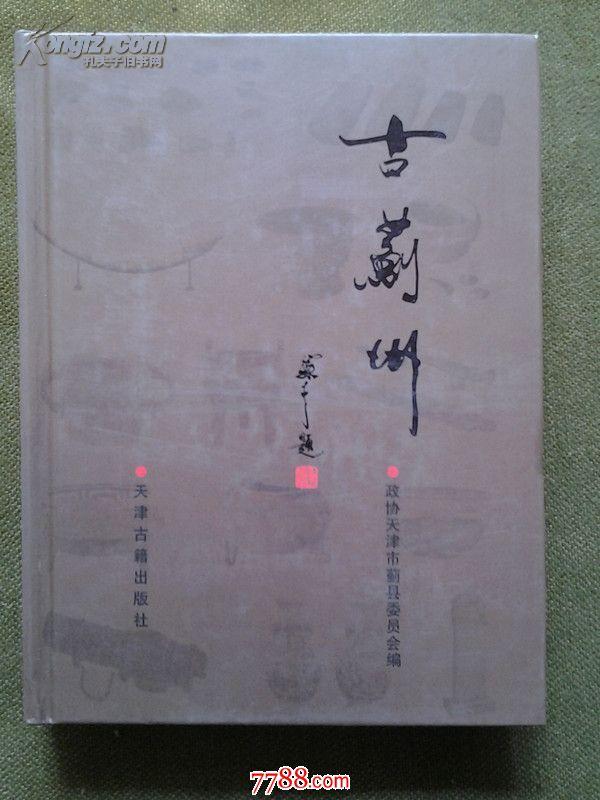 Kongfz.com
孔夫子旧书网
古蓟州
题
政协天津市蓟县委员会编
天津古籍出版社
7788.com